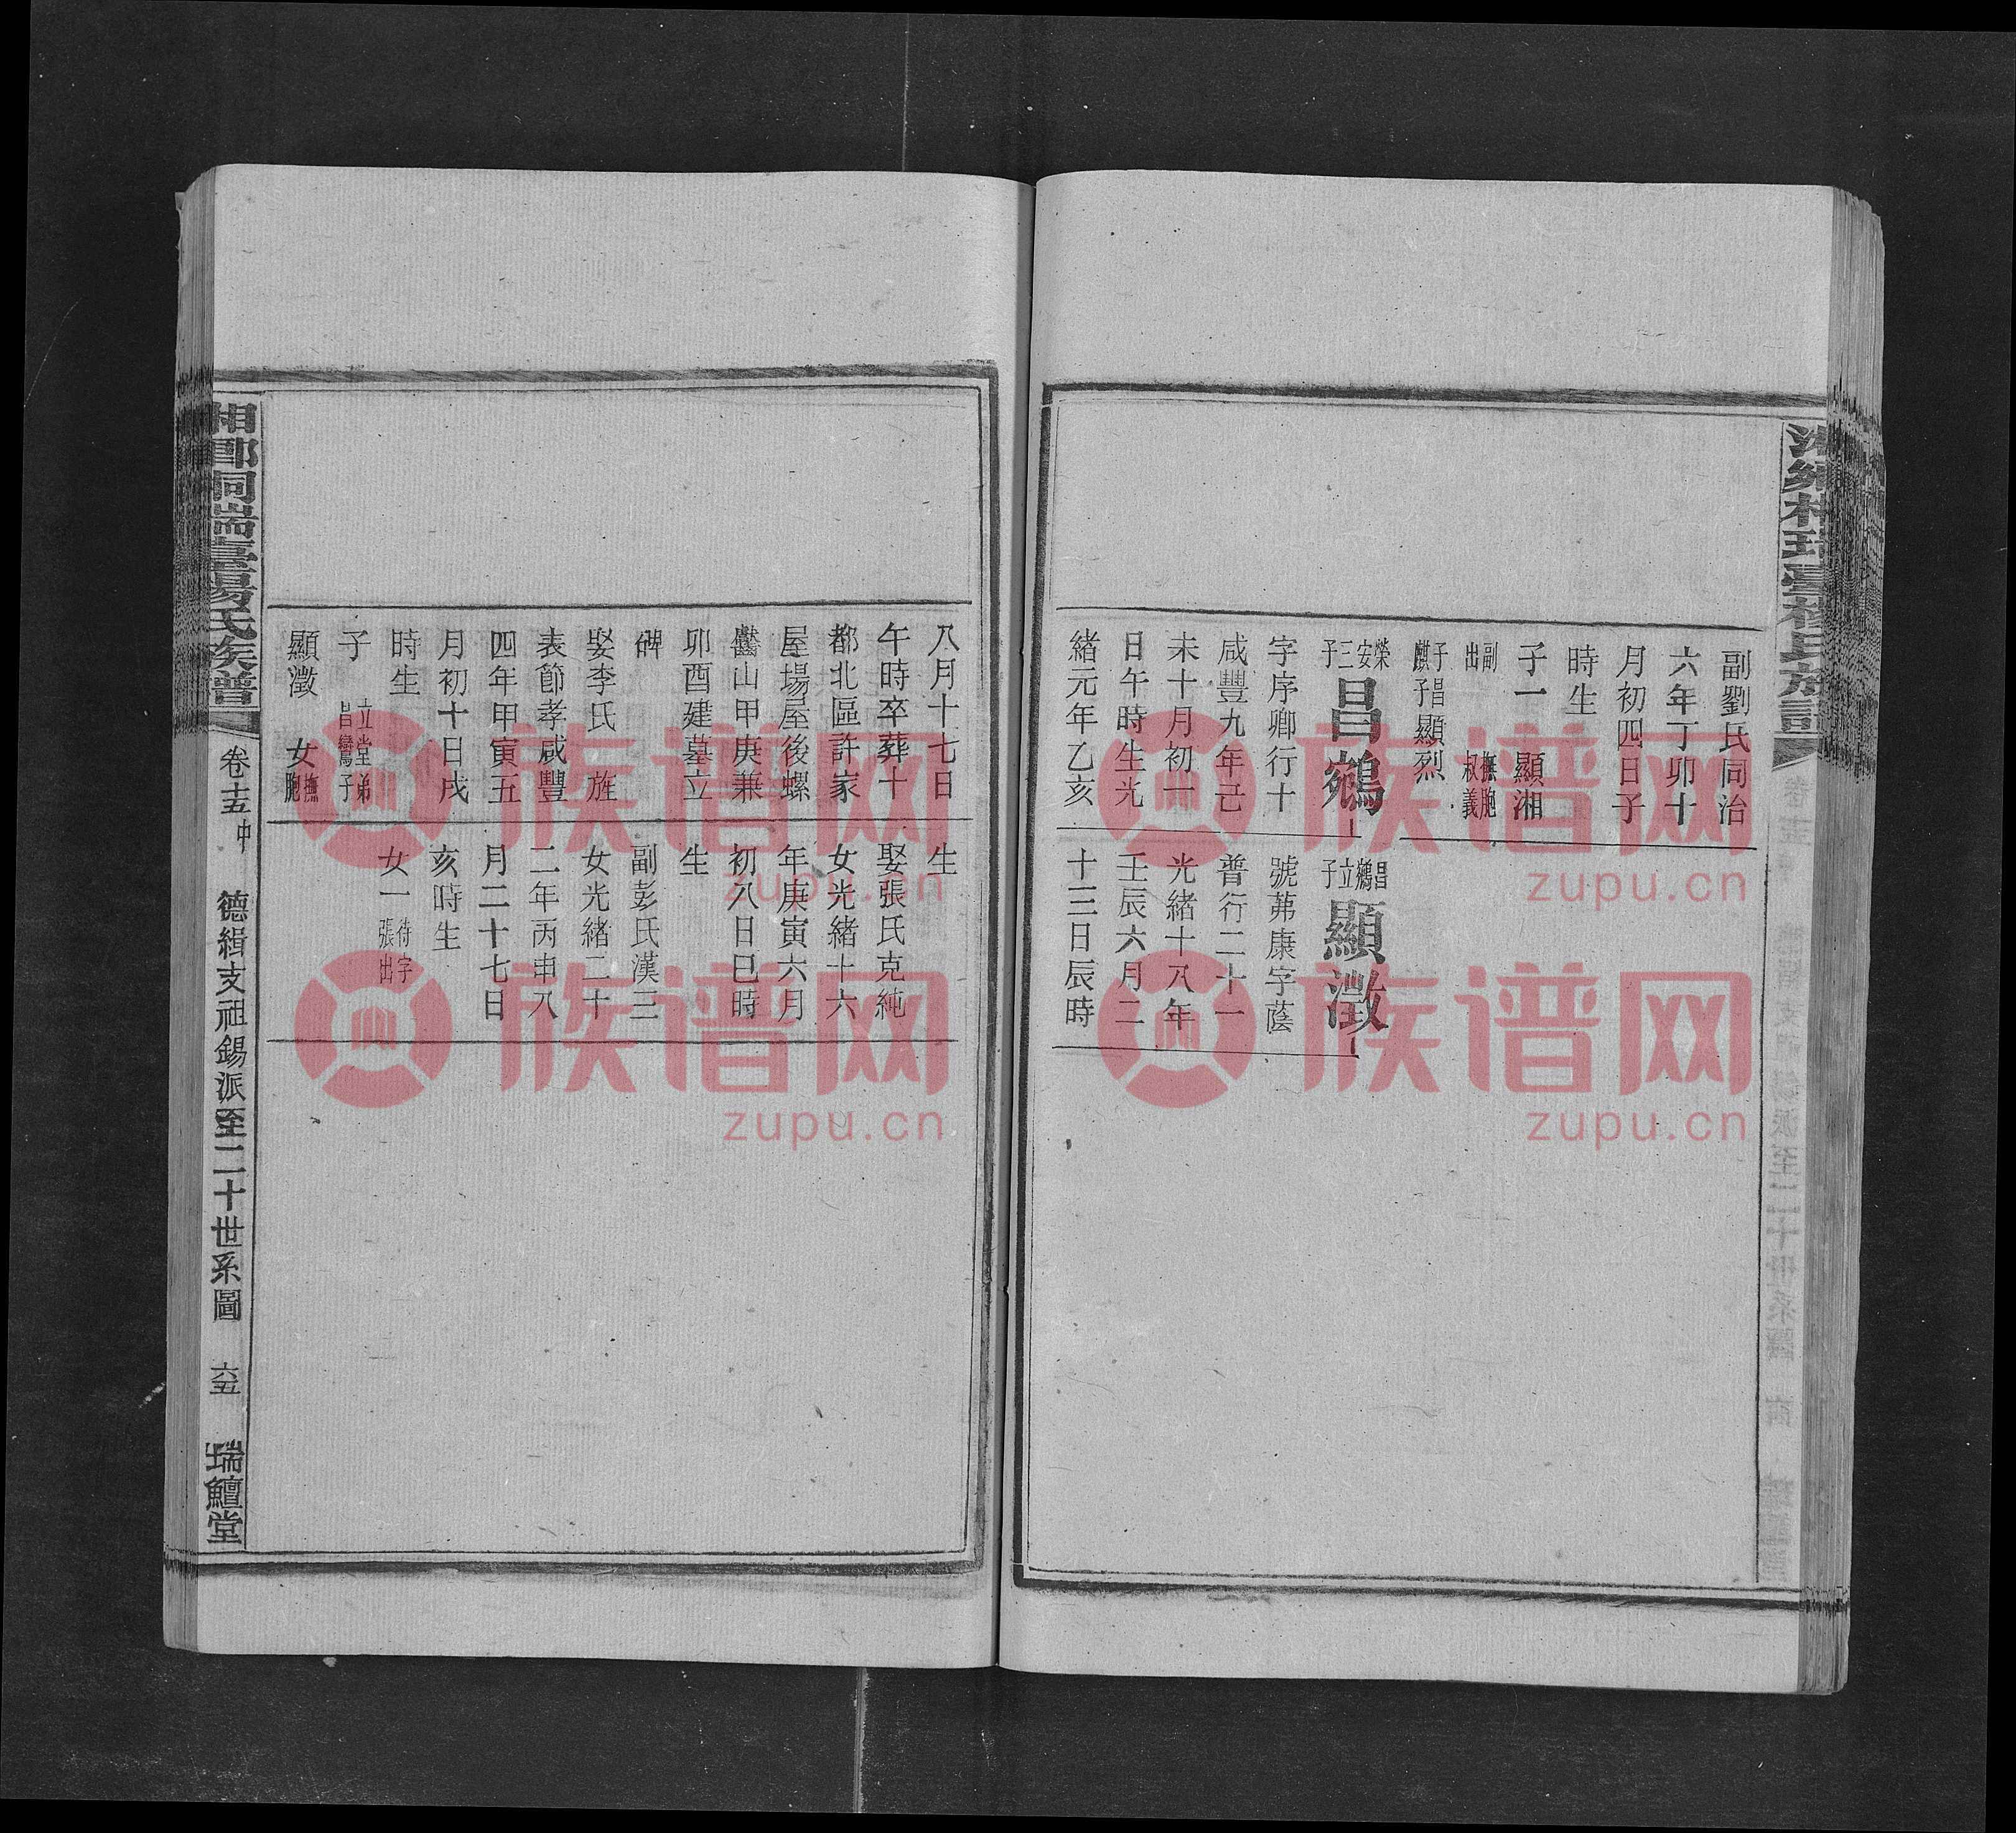 副劉氏同治
六年丁卯十
月初四日子
時生
子一 顯湘
副出 撫胞叔義
子昌麒子顯烈
榮安三子
昌鵷
字序卿行十
咸豐九年己
未十月初一
日午時生光
緒元年乙亥
昌鵷立子
顯澂
號茀康字蔭
普行二十一
光緒十八年
壬辰六月二
十三日辰時
八月十七日
午時卒葬十
都北區許家
屋場屋後螺
山甲庚兼
卯酉建墓立
碑
娶李氏 旌
表節孝咸豐
四年甲寅五
月初十日戌
時生
子 立堂弟昌鸞子
顯澂 女撫胞
生
娶張氏克純
女光緒十六
年庚寅六月
初八日巳時
生
副彭氏漢三
女光緒二十
二年丙申八
月二十七日
亥時生
女一 待字 張出
湘鄉桐瑞臺楊氏族譜
卷十五中
德緝支祖錫派至二十世系圖
六五
瑞鱣堂
族谱网
zupu.cn
族谱网
zupu.cn
族谱网
zupu.cn
族谱网
zupu.cn